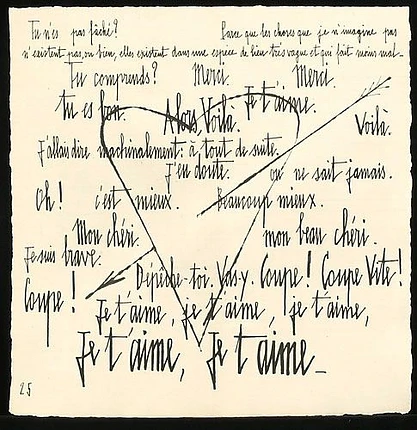 Tu n'es pas fâché? Parce que les choses que je n'imagine pas
n'existent pas, ou bien, elles existent dans une espèce de lieu très vague et qui fait moins mal..
Tu comprends? Merci. Merci.
tu es bon. Alors, Voilà. Je t'aime. Voilà.
J'allais dire machinalement: à tout de suite.
J'en doute. on ne sait jamais.
Oh! c'est mieux. Beaucoup mieux.
Mon chéri. mon beau chéri.
Je suis brave.
Dépêche-toi. Vas-y. Coupe! Coupe Vite!
Coupe! Je t'aime, je t'aime, je t'aime,
Je t'aime, Je t'aime_
25